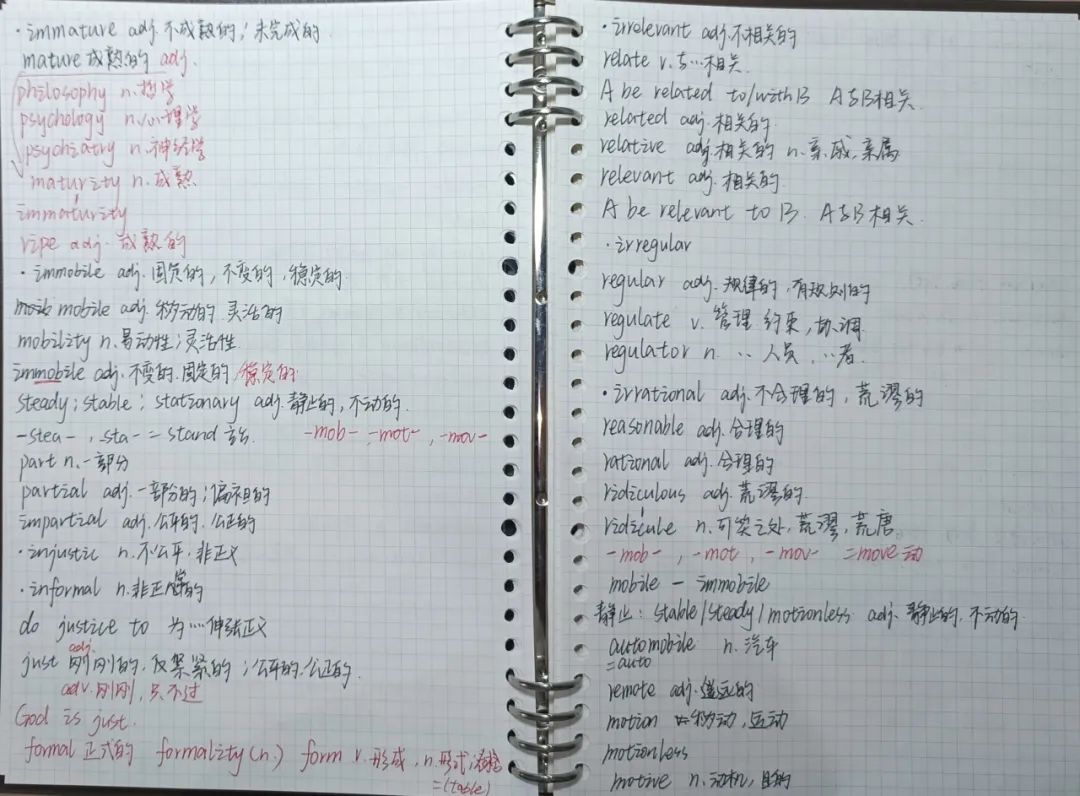 ·immature adj.不成熟的;未完成的
mature 成熟的 adj.
philosophy n.哲学
psychology n.心理学
psychiatry n.神经学
maturity n.成熟
immaturity
ripe adj. 成熟的
·immobile adj.固定的,不变的,稳定的.
mobile adj.移动的 灵活的
mobility n.易动性;灵活性
immobile adj.不变的.固定的/稳定的
steady;stable;stationary adj.静止的,不动的.
-stea-,sta-=stand 站. -mob-,-mot-,-mov-
part n.一部分
partial adj.一部分的;偏袒的
impartial adj.公平的.公正的
·injustic n.不公平,非正义
·informal n.非正常的
do justice to 为……伸张正义
adj.
just 刚刚的, 紧的;公平的.公正的.
adv.刚刚,只不过
God is just.
formal 正式的 formality(n.) form v.形成,n.形式;表格
=(table)
·irrelevant adj.不相关的
relate v.与…相关.
A be related to/with B A与B相关.
related adj.相关的.
relative adj.相关的 n.亲戚,亲属
relevant adj.相关的.
A be relevant to B. A与B相关.
·irregular
regular adj.规律的,有规则的
regulate v.管理 约束,协调
regulator n. ..人员,...者.
·irrational adj.不合理的,荒谬的
reasonable adj.合理的
rational adj.合理的
ridiculous adj.荒谬的
ridicule n.可笑之处,荒谬,荒唐
-mob-,-mot,-mov- =move 动
mobile - immobile
静止: stable/steady/motionless adj.静止的,不动的
automobile n.汽车
=auto
remote adj.遥远的
motion n.移动,运动
motionless
motive n.动机,目的